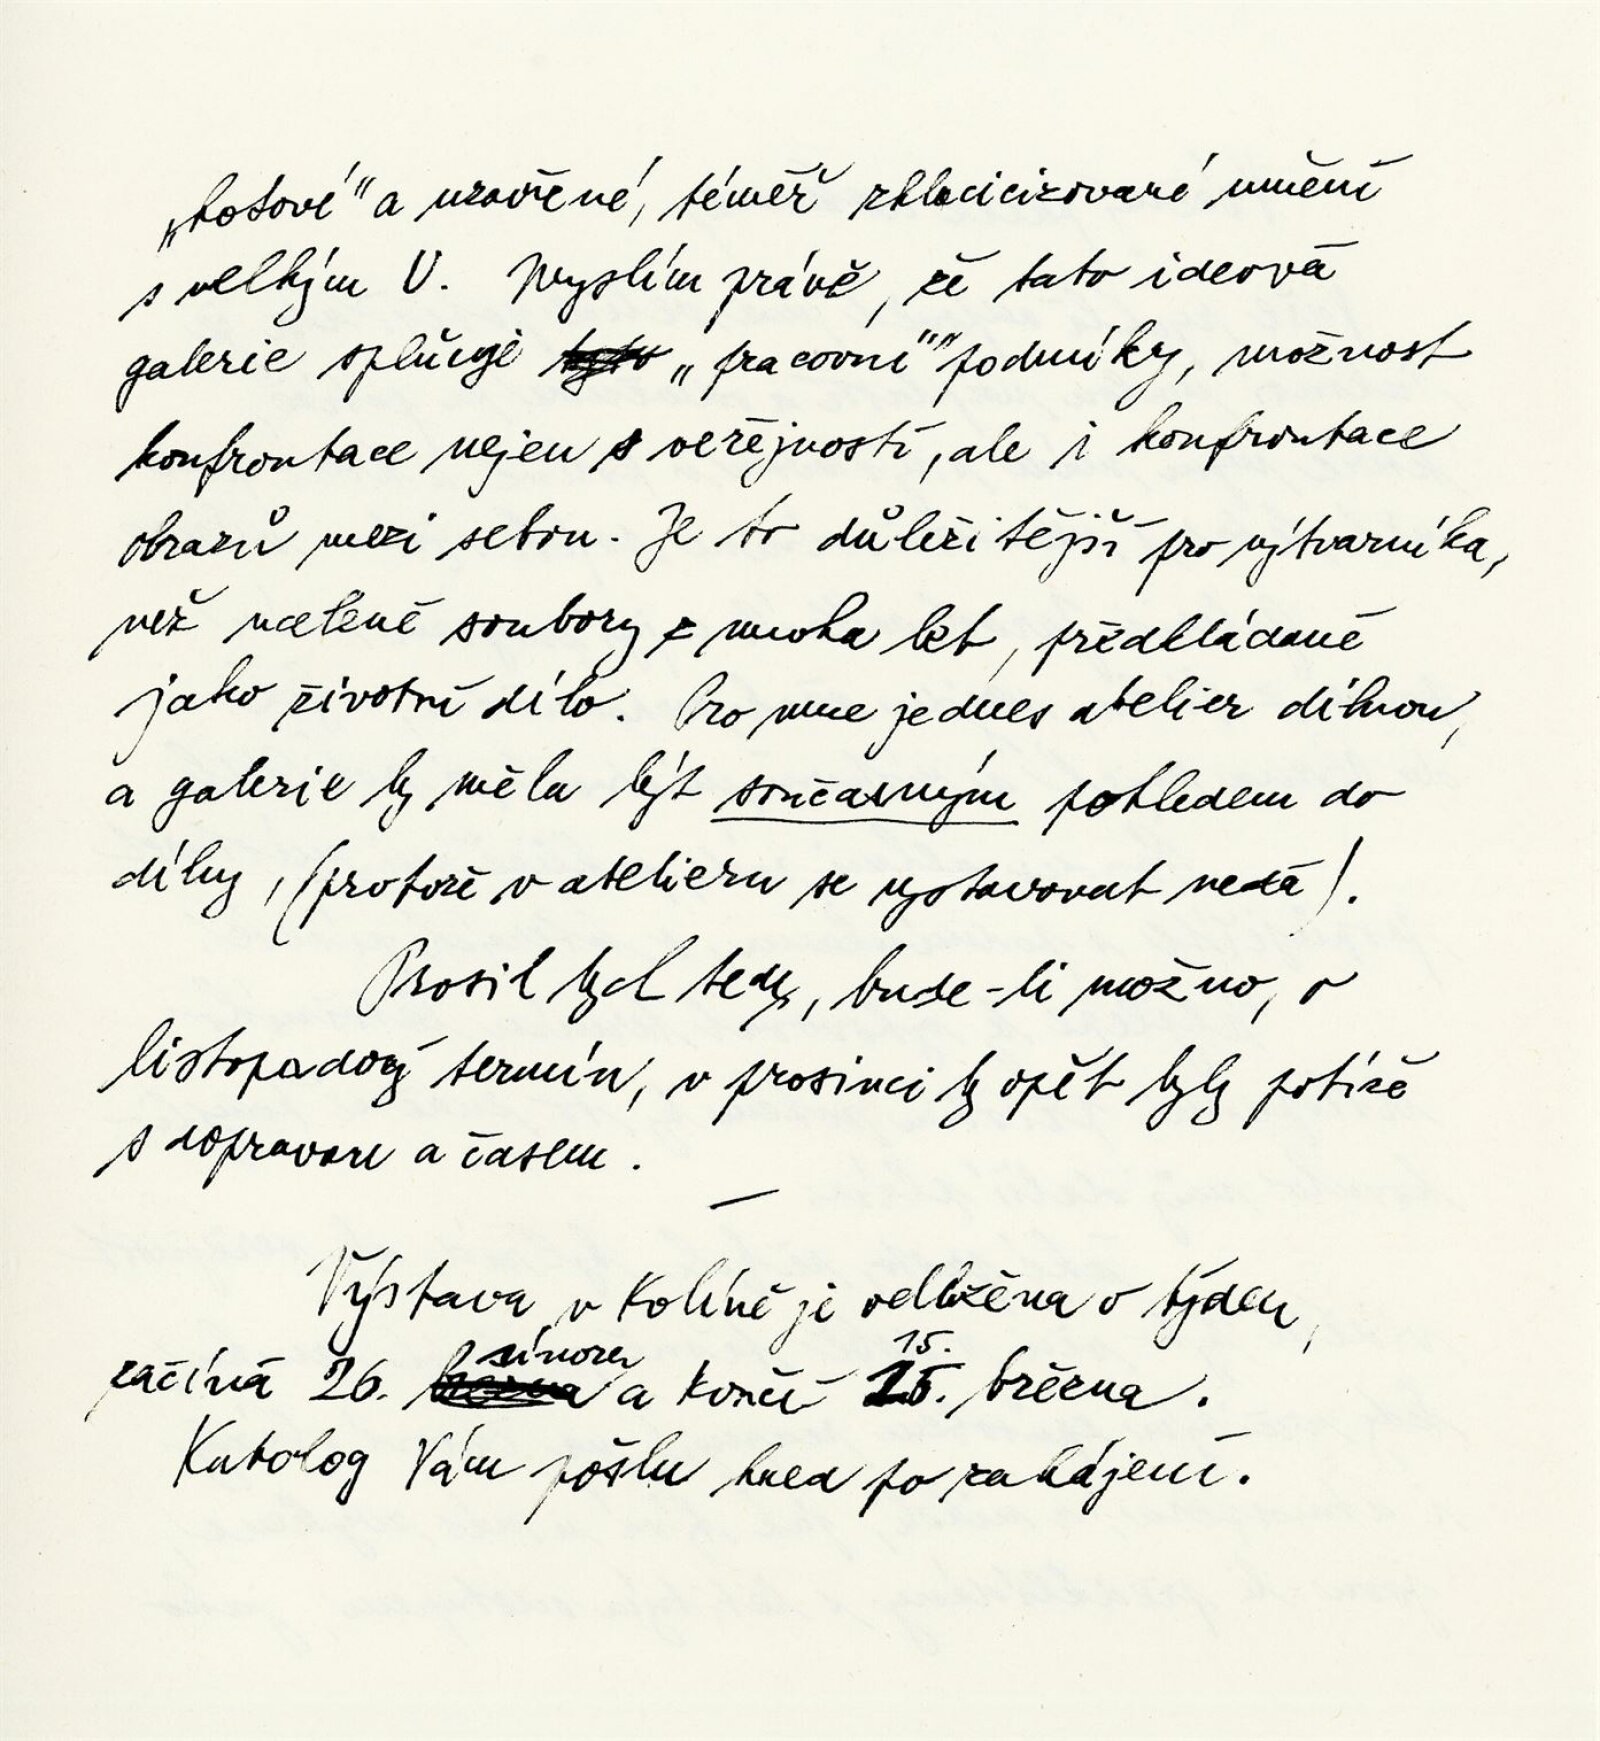 „hotové" a uzavřené, téměř zklacicizované umění
s velkým U. Myslím právě, že tato ideová
galerie splňuje tyto „pracovní"" podmínky, možnost
konfrontace nejen s veřejností, ale i konfrontace
obrazů mezi sebou. Je to důležitější pro výtvarníka,
než ucelené soubory z mnoha let, předkládané
jako životní dílo. Pro mne je dnes atelier dílnou,
a galerie by měla být současným pohledem do
dílny, (protože v atelieru se vystavovat nedá).
Prosil bych tedy, bude-li možno, o
listopadový termín, v prosinci by opět byly potíže
s dopravou a časem.
—
Výstava v Kolíně je odložena o týden,
začíná 26. února a končí 15. března.
Katalog Vám pošlu hned po zahájení.